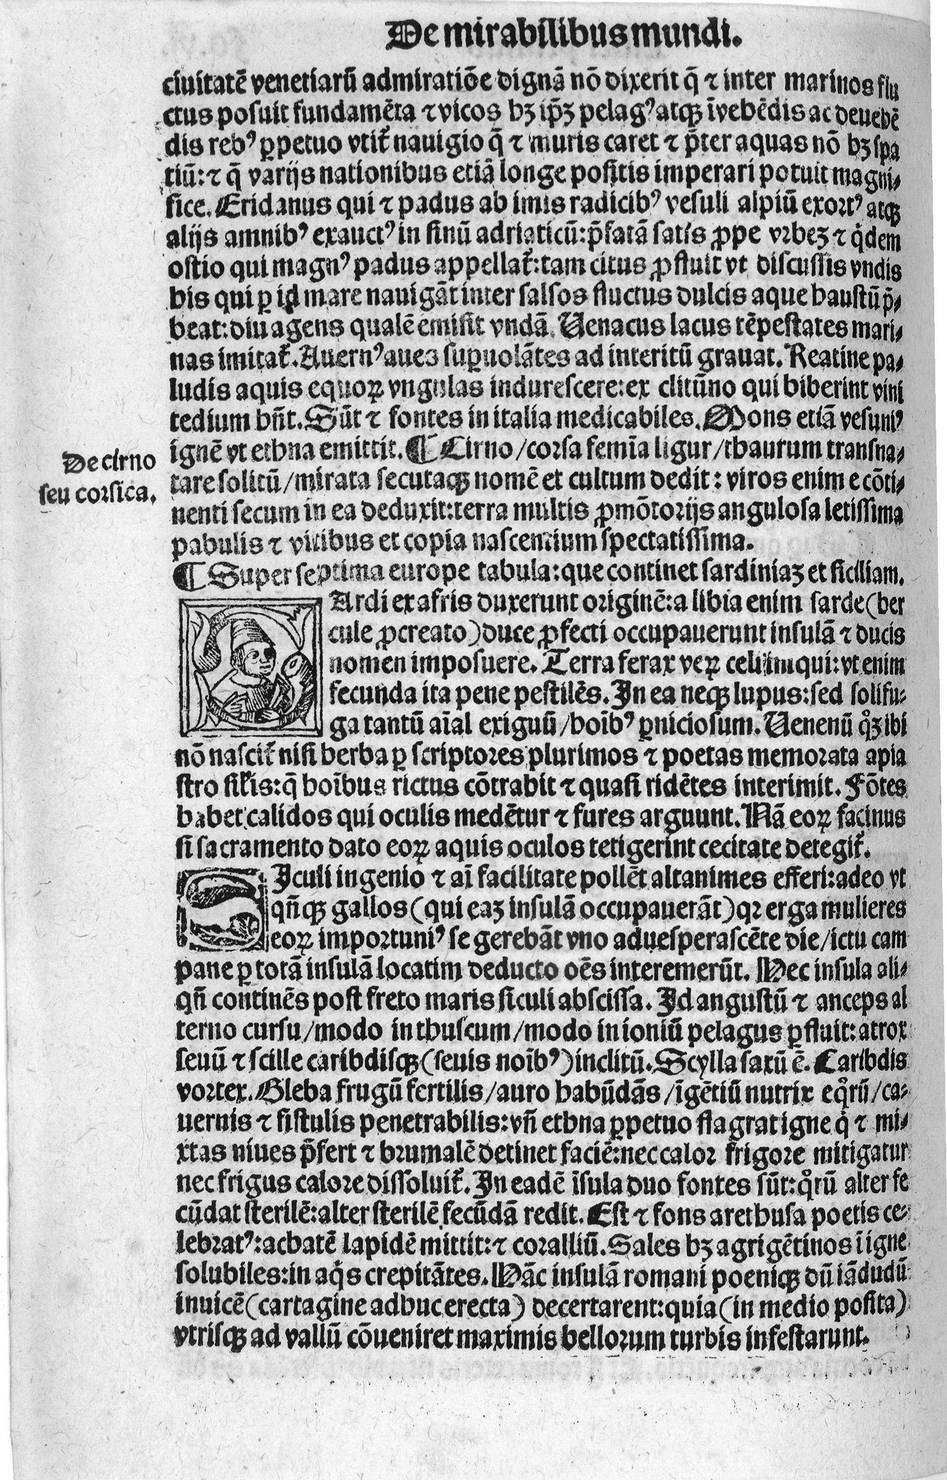 De mirabilibus mundi.
ciuitatē venetiarū admiratiōe dignā nō dixerit q̄ ⁊ inter marinos flu
ctus posuit fundamēta ⁊ vicos hꝫ ip̄ꝫ pelagꝰ atqꝫ īvehēdis ac deuehē
dis rebꝰ ꝑpetuo vtit᷑ nauigio q̄ ⁊ muris caret ⁊ p̄ter aquas nō hꝫ spa
tiū: ⁊ q̄ varijs nationibus etiā longe positis imperari potuit magni⸗
fice. Eridanus qui ⁊ padus ab imis radicibꝰ vesuli alpiū exortꝰ atqꝫ
alijs amnibꝰ exauctꝰ in sinū adriaticū: p̄fatā satis ꝓpe vrbeꝫ ⁊ q̇dem
ostio qui magnꝰ padus appellat᷑: tam citus ꝓfluit vt discussis vndis
his qui ꝑ id mare nauigāt inter salsos fluctus dulcis aque haustū p̄⸗
beat: diu agens qualē emisit vndā. Uenacus lacus tēpestates mari⸗
nas imitat᷑. Auernꝰ aues suꝑuolātes ad interitū grauat. Reatine pa⸗
ludis aquis equoꝝ vngulas indurescere: ex clitūno qui biberint vini
tedium hn̄t. Sūt ⁊ fontes in italia medicabiles. Mons etiā vesuniꝰ
ignē vt ethna emittit. ¶ Cirno/corsa femīa ligur/thaurum transna⸗
De cirno
seu corsica.
tare solitū/mirata secutaqꝫ nomē et cultum dedit: viros enim e cōti⸗
nenti secum in ea deduxit: terra multis ꝓmōtorijs angulosa letissima
pabulis ⁊ vitibus et copia nascentium spectatissima.
¶ Super septima europe tabula: que continet sardiniaꝫ et siciliam.
Ardi ex afris duxerunt originē: a libia enim sarde (her
cule ꝓcreato) duce ꝓfecti occupauerunt insulā ⁊ ducis
nomen imposuere. Terra ferax veꝝ celi iniqui: vt enim
fecunda ita pene pestilēs. In ea neqꝫ lupus: sed solifu⸗
ga tantū aīal exiguū/hoībꝰ ꝑniciosum. Uenenū qͦꝫ ibi
nō nascit᷑ nisi herba ꝑ scriptores plurimos ⁊ poetas memorata apia
stro sil̄is: q̄ hoībus rictus cōtrahit ⁊ quasi ridētes interimit. Fōtes
habet calidos qui oculis medētur ⁊ fures arguunt. Nā eoꝝ facinus
si sacramento dato eoꝝ aquis oculos tetigerint cecitate detegit᷑.
SIculi ingenio ⁊ aī facilitate pollēt altanimes efferi: adeo vt
qn̄qꝫ gallos (qui eaꝫ insulā occupauerāt) qꝛ erga mulieres
eoꝝ importuniꝰ se gerebāt vno aduesperascēte die/ictu cam
pane ꝑ totā insulā locatim deducto oēs interemerūt. Hec insula ali⸗
qn̄ continēs post freto maris siculi abscissa. Id angustū ⁊ anceps al
terno cursu/modo in thuscum/modo in ioniū pelagus ꝑfluit: atrox
seuū ⁊ scille caribdisqꝫ (seuis noībꝰ) inclitū. Scylla saxū ē. Caribdis
vortex. Gleba frugū fertilis/auro habūdās/īgētiū nutrix eqͦrū/ca⸗
uernis ⁊ fistulis penetrabilis: vn̄ ethna ꝑpetuo flagrat igne q̇ ⁊ mi⸗
xtas niues p̄fert ⁊ brumalē detinet faciē: nec calor frigore mitigatur
nec frigus calore dissoluit᷑. In eadē īsula duo fontes sūt: qͦrū alter fe
cūdat sterilē: alter sterilē fecūdā redit. Est ⁊ fons arethusa poetis ce⸗
lebratꝰ: achatē lapidē mittit: ⁊ coralliū. Sales hꝫ agrigētinos ī igne
solubiles: in aq̇s crepitātes. Hāc insulā romani poeniqꝫ dū iādudū
inuicē (cartagine adhuc erecta) decertarent: quia (in medio posita)
vtrisqꝫ ad vallū cōueniret maximis bellorum turbis infestarunt.